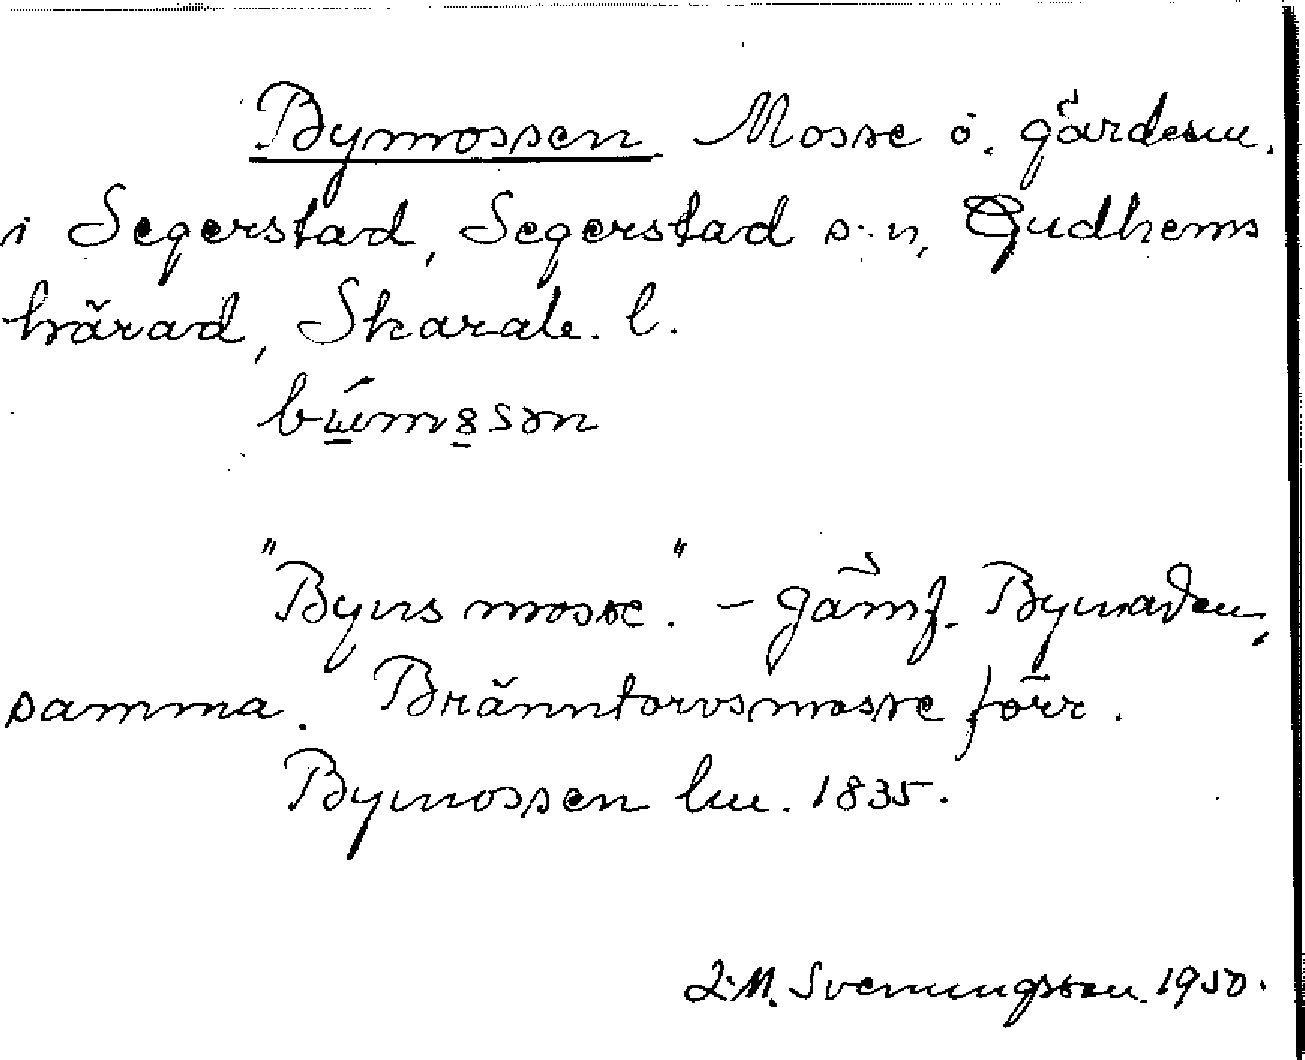 Bymossen. Mosse ö. gärdesm.
i Segerstad, Segerstad s:n, Gudhems
härad, Skarab. l.
"Byns mosse." – Jämf. Bymaden,
samma. Bränntorvsmosse förr.
Bymossen lm. 1835.
L.M. Svenungsson 1950.